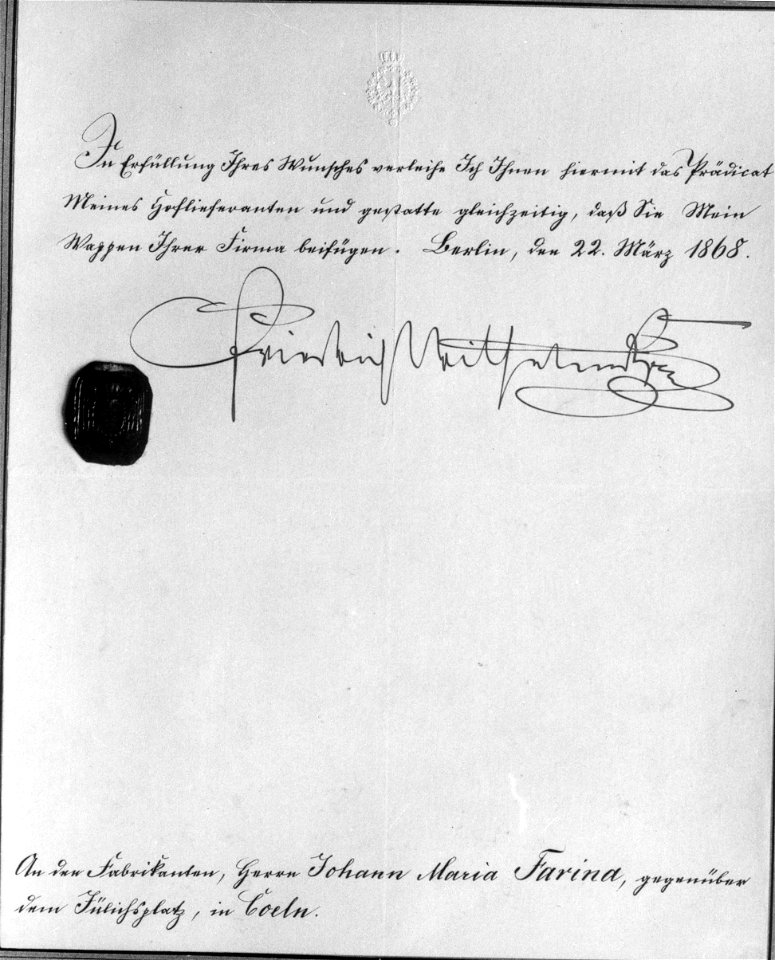 In Erfüllung Ihres Wunsches verleihe Ich Ihnen hiermit das Prädicat
Meines Hoflieferanten und gestatte gleichzeitig, daß Sie Mein
Wappen Ihrer Firma beifügen. Berlin, den 22. März 1868.
Friedrich Wilhelm
An den Fabrikanten, Herrn Johann Maria Farina, gegenüber
dem Jülichsplatz, in Coeln.